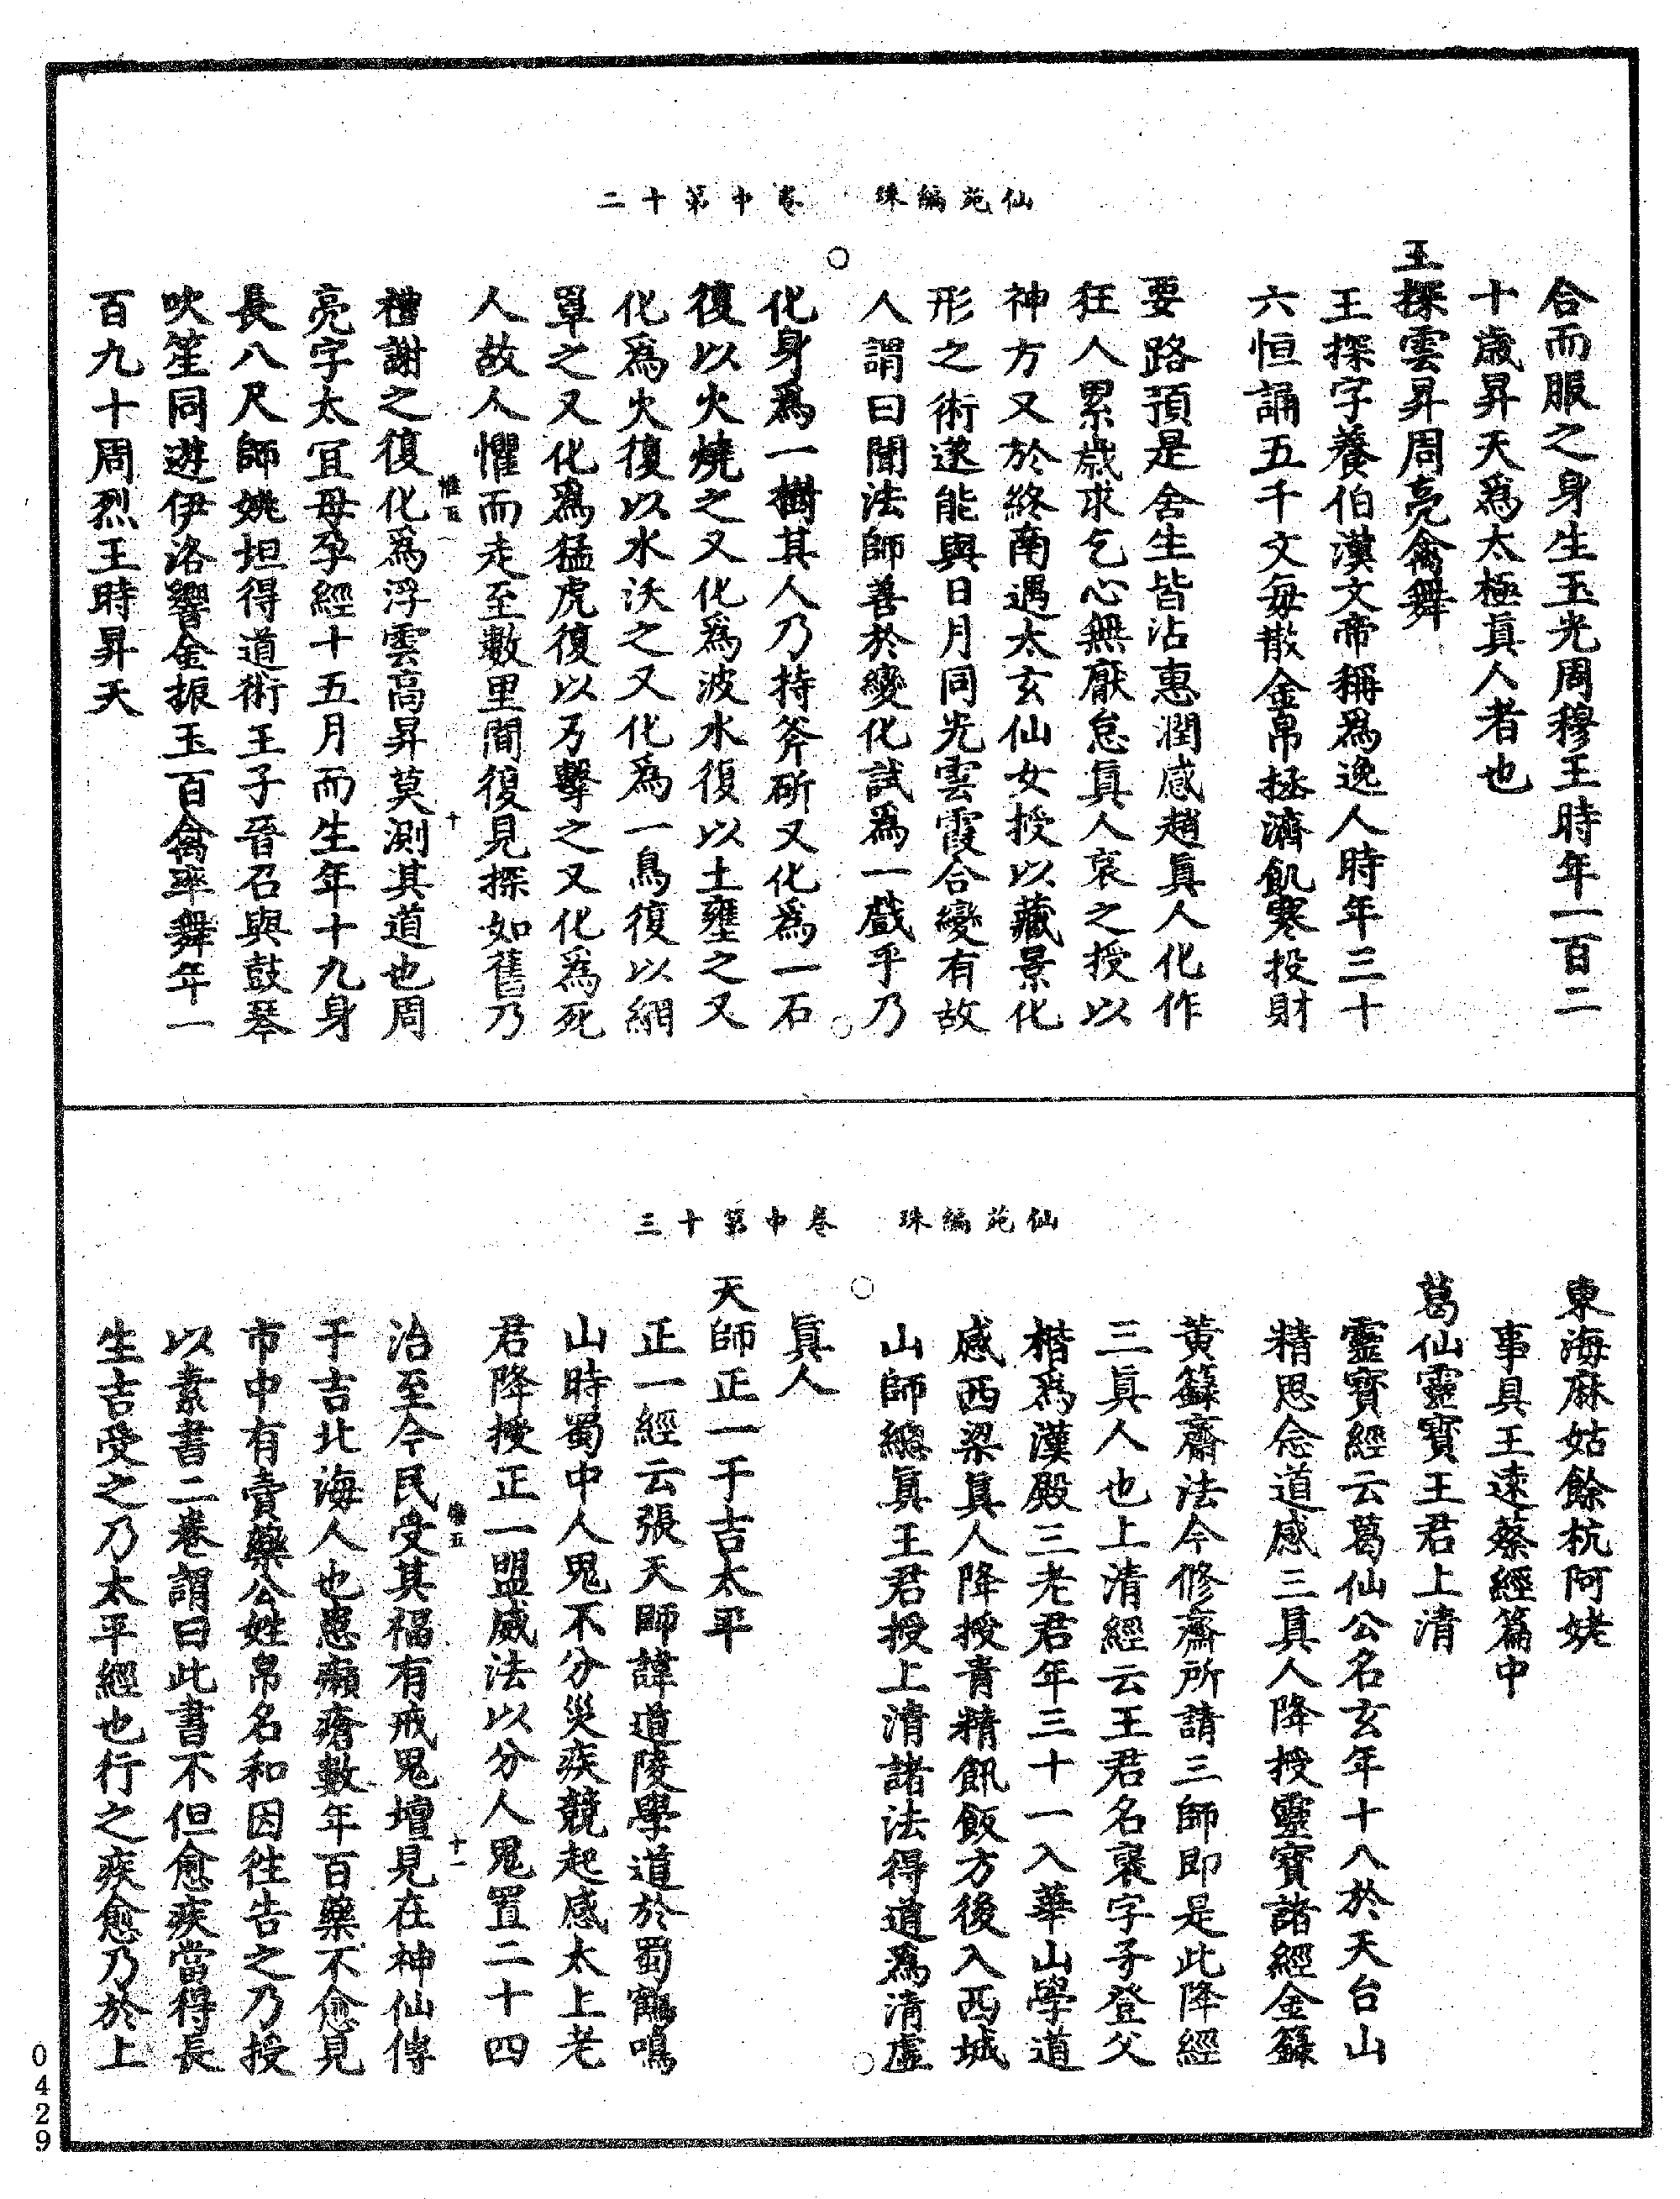 仙苑編珠　卷中第十二
合而服之身生玉光周穆王時年一百二
十歲昇天爲太極眞人者也
王探雲昇周亮禽舞
王探字養伯漢文帝稱爲逸人時年三十
六恒誦五千文每散金帛拯濟飢寒投財
要路預是舍生皆沾惠潤感趙眞人化作
狂人累歲求乞心無厭怠眞人哀之授以
神方又於終南遇太玄仙女授以藏景化
形之術遂能與日月同光雲霞合變有故
人謂曰聞法師善於變化試爲一戲乎乃
化身爲一樹其人乃持斧斫又化爲一石
復以火燒之又化爲波水復以土壅之又
化爲火復以水沃之又化爲一鳥復以網
罩之又化爲猛虎復以刀擊之又化爲死
人故人懼而走至數里間復見探如舊乃
禮謝之復化爲浮雲高昇莫測其道也周
亮字太宜母孕經十五月而生年十九身
長八尺師姚坦得道術王子晉召與鼓琴
吹笙同遊伊洛響金振玉百禽率舞年一
百九十周烈王時昇天
十
仙苑編珠　卷中第十三
東海麻姑餘杭阿姥
事具王遠蔡經篇中
葛仙靈寶王君上清
靈寶經云葛仙公名玄年十八於天台山
精思念道感三眞人降授靈寶諸經金籙
黃籙齋法今修齋所請三師即是此降經
三眞人也上清經云王君名襃字子登父
楷爲漢殿三老君年三十一入華山學道
感西梁眞人降授青精䭀飯方後入西城
山師總眞王君授上清諸法得道爲清虛
眞人
天師正一于吉太平
正一經云張天師諱道陵學道於蜀鶴鳴
山時蜀中人鬼不分災疾競起感太上老
君降授正一盟威法以分人鬼置二十四
治至今民受其福有戒鬼壇見在神仙傳
于吉北海人也患癩瘡數年百藥不愈見
市中有賣藥公姓帛名和因往告之乃授
以素書二卷謂曰此書不但愈疾當得長
生吉受之乃太平經也行之疾愈乃於上
十一
0429